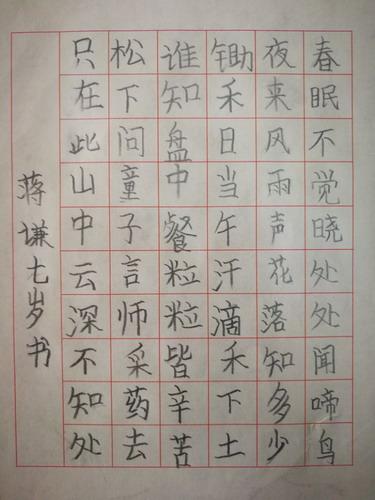 春眠不觉晓处处闻啼鸟
夜来风雨声花落知多少
锄禾日当午汗滴禾下土
谁知盘中餐粒粒皆辛苦
松下问童子言师采药去
只在此山中云深不知处
蒋谦七岁书